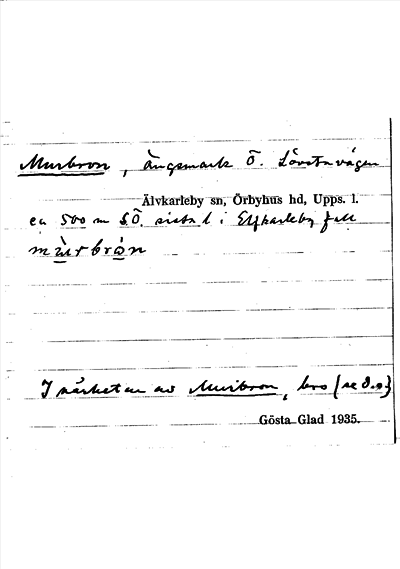 Murbron, ängsmark Ö. Lövstavägen
Älvkarleby sn, Örbyhus hd, Upps. l.
ca 500 m SÖ. sista l i Elfkarleby fall
mùrbròn
I närheten av Murbron, bro (se d.o)
Gösta Glad 1935.